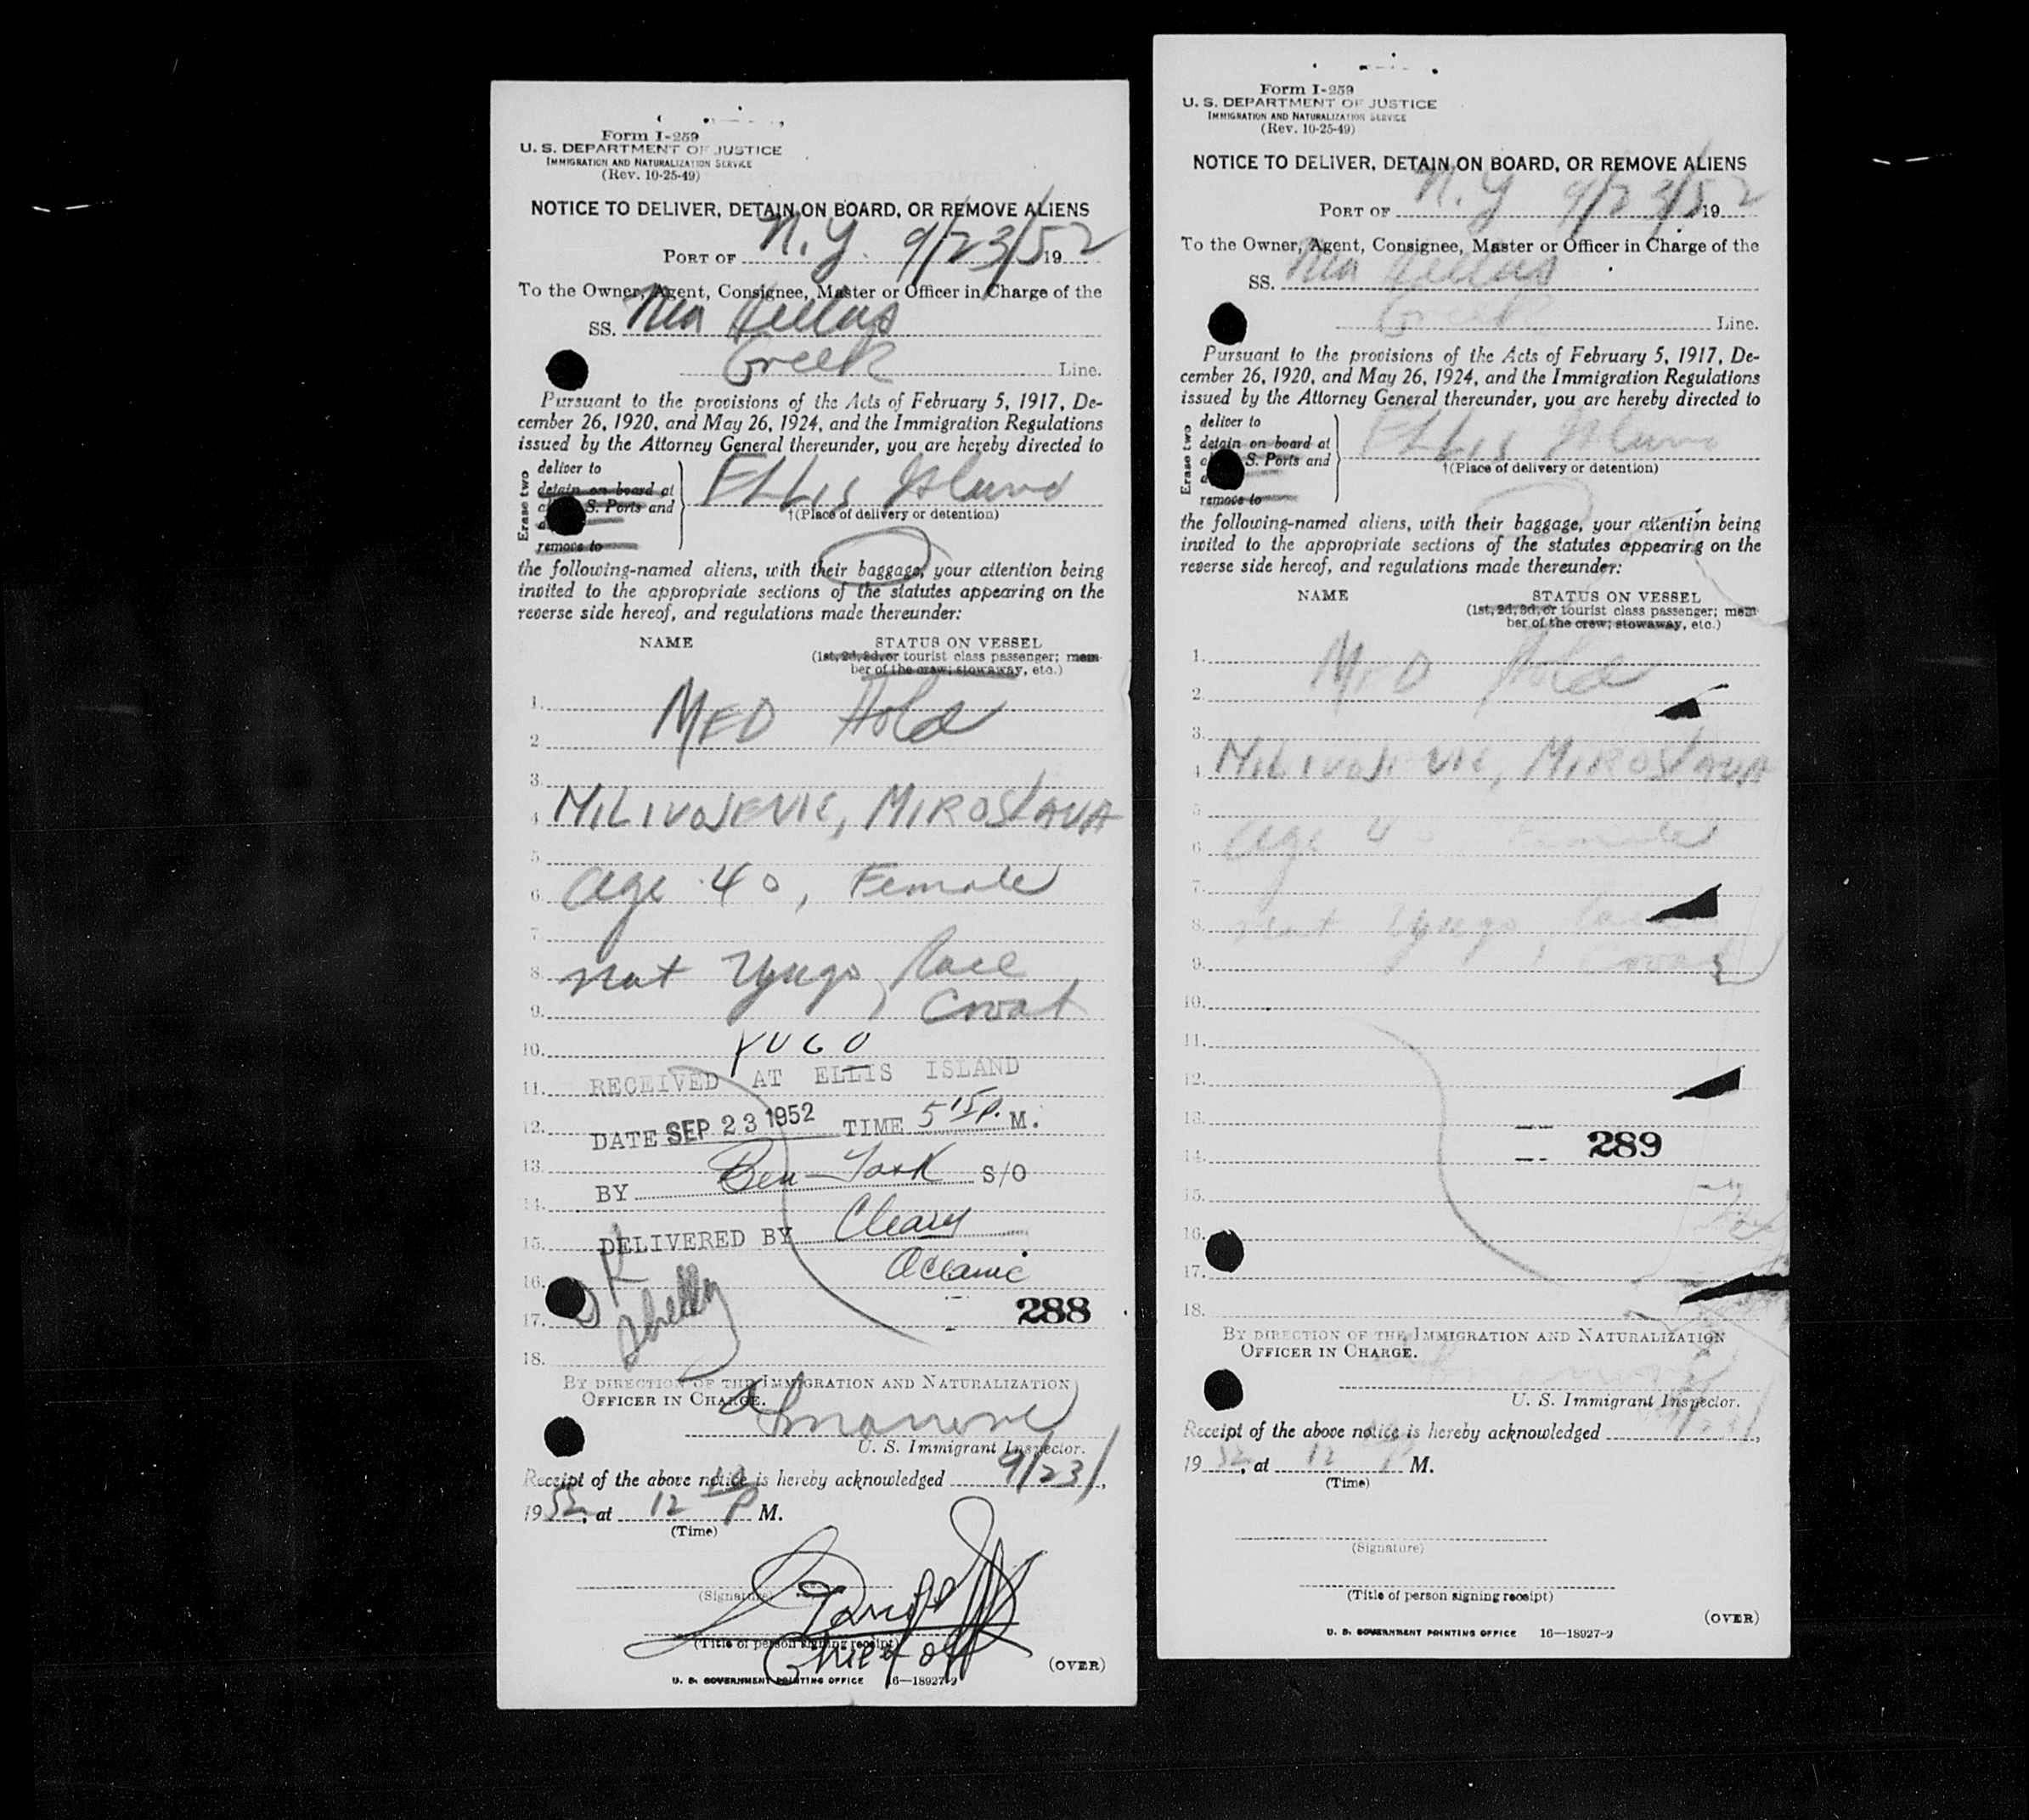 Form I-259
U. S. DEPARTMENT OF JUSTICE
IMMIGRATION AND NATURALIZATION SERVICE
(Rev. 10-25-49)
NOTICE TO DELIVER, DETAIN ON BOARD, OR REMOVE ALIENS
PORT OF N.Y. 9/23/52 19
To the Owner, Agent, Consignee, Master or Officer in Charge of the
SS. Nea Hellas
Greek Line.
Pursuant to the provisions of the Acts of February 5, 1917, De-
cember 26, 1920, and May 26, 1924, and the Immigration Regulations
issued by the Attorney General thereunder, you are hereby directed to
Erase two
deliver to
detain on board at
S. Ports and
remove to
ELLIS Island
†(Place of delivery or detention)
the following-named aliens, with their baggage, your attention being
invited to the appropriate sections of the statutes appearing on the
reverse side hereof, and regulations made thereunder:
NAME STATUS ON VESSEL
(1st, 2d, 3d, or tourist class passenger; mem-
ber of the crew; stowaway, etc.)
1.
2. MED Hold
3.
4. MILIVOJEVIC, MIROSLAVA
5.
6. age 40, Female
7.
8. nat Yugo, Race
9. Croat
10. YUGO
11. RECEIVED AT ELLIS ISLAND
12. DATE SEP 23 1952 TIME 5 15 P. M.
13. BY Ben S/O
14.
15. DELIVERED BY Cleary
16. Oceanic
17. 288
18.
BY DIRECTION OF THE IMMIGRATION AND NATURALIZATION
OFFICER IN CHARGE.
U. S. Immigrant Inspector.
Receipt of the above notice is hereby acknowledged 9/23/,
1952, at 12 P M.
(Time)
(Signature)
(Title of person signing receipt)
Chief off
(OVER)
U. S. GOVERNMENT PRINTING OFFICE 16—18927-2
Form I-259
U. S. DEPARTMENT OF JUSTICE
IMMIGRATION AND NATURALIZATION SERVICE
(Rev. 10-25-49)
NOTICE TO DELIVER, DETAIN ON BOARD, OR REMOVE ALIENS
PORT OF N.Y 9/23/52 19
To the Owner, Agent, Consignee, Master or Officer in Charge of the
SS. Nea Hellas
Greek Line.
Pursuant to the provisions of the Acts of February 5, 1917, De-
cember 26, 1920, and May 26, 1924, and the Immigration Regulations
issued by the Attorney General thereunder, you are hereby directed to
Erase two
deliver to
detain on board at
S. Ports and
remove to
ELLIS Island
†(Place of delivery or detention)
the following-named aliens, with their baggage, your attention being
invited to the appropriate sections of the statutes appearing on the
reverse side hereof, and regulations made thereunder:
NAME STATUS ON VESSEL
(1st, 2d, 3d, or tourist class passenger; mem-
ber of the crew; stowaway, etc.)
1.
2. MED Hold
3.
4. MILIVOJEVIC, MIROSLAVA
5.
6. age 40 Female
7.
8. nat Yugo, Race
9. Croat
10.
11.
12.
13.
14. 289
15.
16.
17.
18.
BY DIRECTION OF THE IMMIGRATION AND NATURALIZATION
OFFICER IN CHARGE.
U. S. Immigrant Inspector.
Receipt of the above notice is hereby acknowledged 9/23/,
1952, at 12 P M.
(Time)
(Signature)
(Title of person signing receipt)
(OVER)
U. S. GOVERNMENT PRINTING OFFICE 16—18927-2